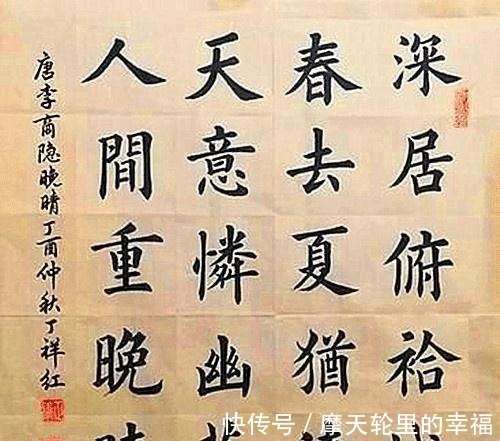 深居俯袷
春去夏猶
天意憐幽
人間重晚
唐李商隐晚晴丁酉仲秋丁祥红
快传号 / 摩天轮里的幸福